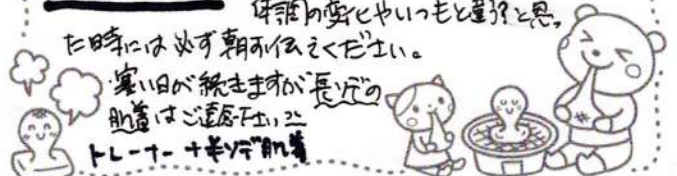 体調の変化やいつもと違う?と思っ
た時には必ず朝お伝えください。
・寒い日が続きますが長ソデの
肌着はご遠慮下さい
トレーナー+半ソデ肌着